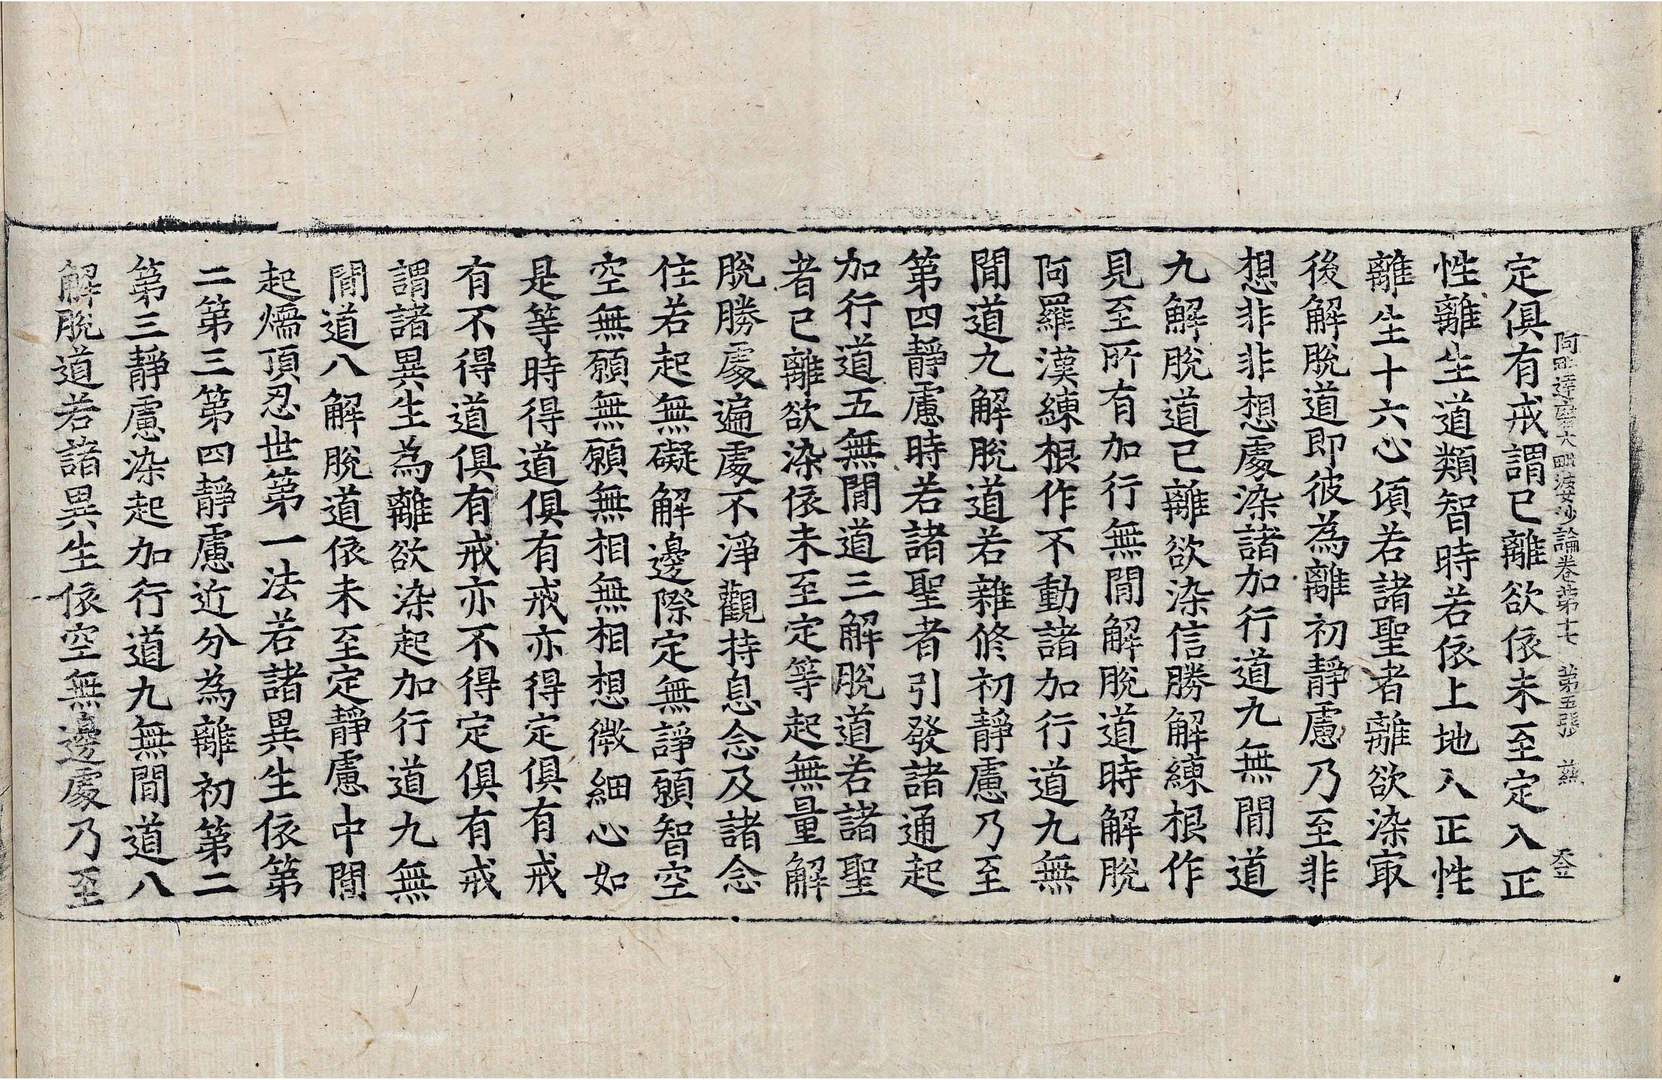 阿毗達磨大毗婆沙論卷第十七 第五張
定俱有戒謂已離欲依未至定入正
性離生道類智時若依上地入正性
離生十六心頃若諸聖者離欲染㝡
後解脫道即彼為離初靜慮乃至非
想非非想處染諸加行道九無間道
九解脫道已離欲染信勝解練根作
見至所有加行無間解脫道時解脫
阿羅漢練根作不動諸加行道九無
間道九解脫道若雜修初靜慮乃至
第四靜慮時若諸聖者引發諸通起
加行道五無間道三解脫道若諸聖
者已離欲染依未至定等起無量解
脫勝處遍處不淨觀持息念及諸念
住若起無礙解邊際定無諍願智空
空無願無願無相無相想微細心如
是等時得道俱有戒亦得定俱有戒
有不得道俱有戒亦不得定俱有戒
謂諸異生為離欲染起加行道九無
間道八解脫道依未至定靜慮中間
起煗頂忍世第一法若諸異生依第
二第三第四靜慮近分為離初第二
第三靜慮染起加行道九無間道八
解脫道若諸異生依空無邊處乃至